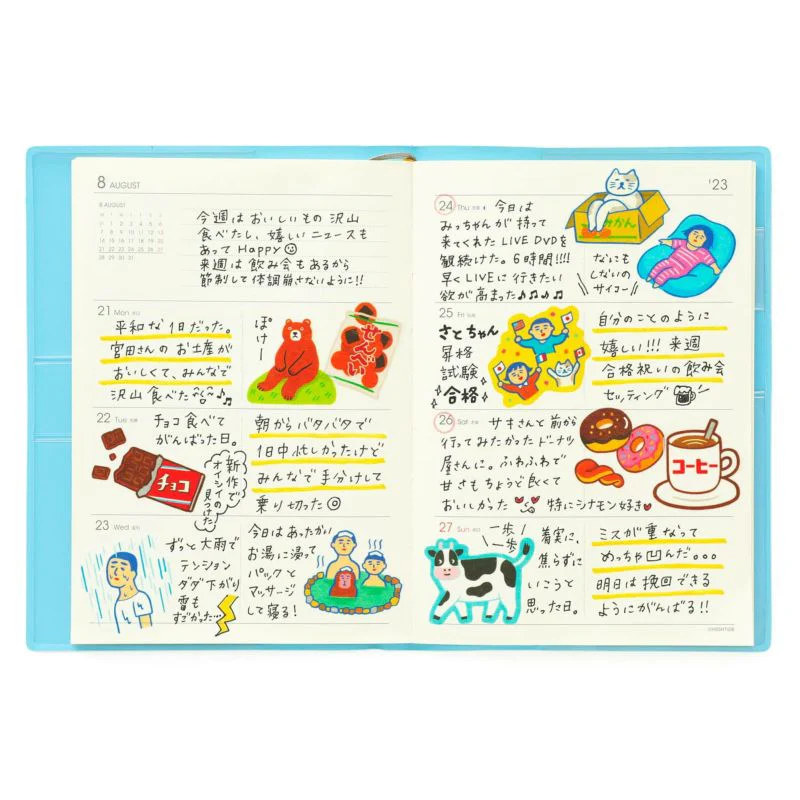 8 AUGUST
8 AUGUST
M T W T F S S
1 2 3 4 5 6
7 8 9 10 11 12 13
14 15 16 17 18 19 20
21 22 23 24 25 26 27
28 29 30 31
今週はおいしいもの沢山
食べたし、嬉しいニュースも
あってHappy
来週は飲み会もあるから
節制して体調崩さないように!!
21 Mon
平和な1日だった。
宮田さんのお土産が
おいしくて、みんなで
沢山食べた♪♫
ぽけー
せんべい
22 Tue
チョコ食べて
がんばった日。
チョコ
新作で
オイシイの
見つけた
朝からバタバタで
1日中忙しかったけど
みんなで手分けして
乗り切った◎
23 Wed
ずっと大雨で
テンション
ダダ下がり
雷も
すごかった…
今日はあったかい
お湯に浸って
パックと
マッサージ
して寝る!
'23
24 Thu
今日は
みっちゃんが持って
来てくれたLIVE DVDを
観続けた。6時間!!!!
早くLIVEに行きたい
欲が高まった♪♪♪♪
みかん
なにも
しないの
サイコー
25 Fri
さとちゃん
昇格
試験
合格
自分のことのように
嬉しい!!! 来週
合格祝いの飲み会
セッティング
26 Sat
サキさんと前から
行ってみたかったドーナツ
屋さんに。ふわふわで
甘さもちょうど良くて
おいしかった 特にシナモン好き♥
コーヒー
27 Sun
一歩
一歩
着実に、
焦らずに
いこうと
思った日。
ミスが重なって
めっちゃ凹んだ。。。
明日は挽回できる
ようにがんばる!!
©HIGHTIDE